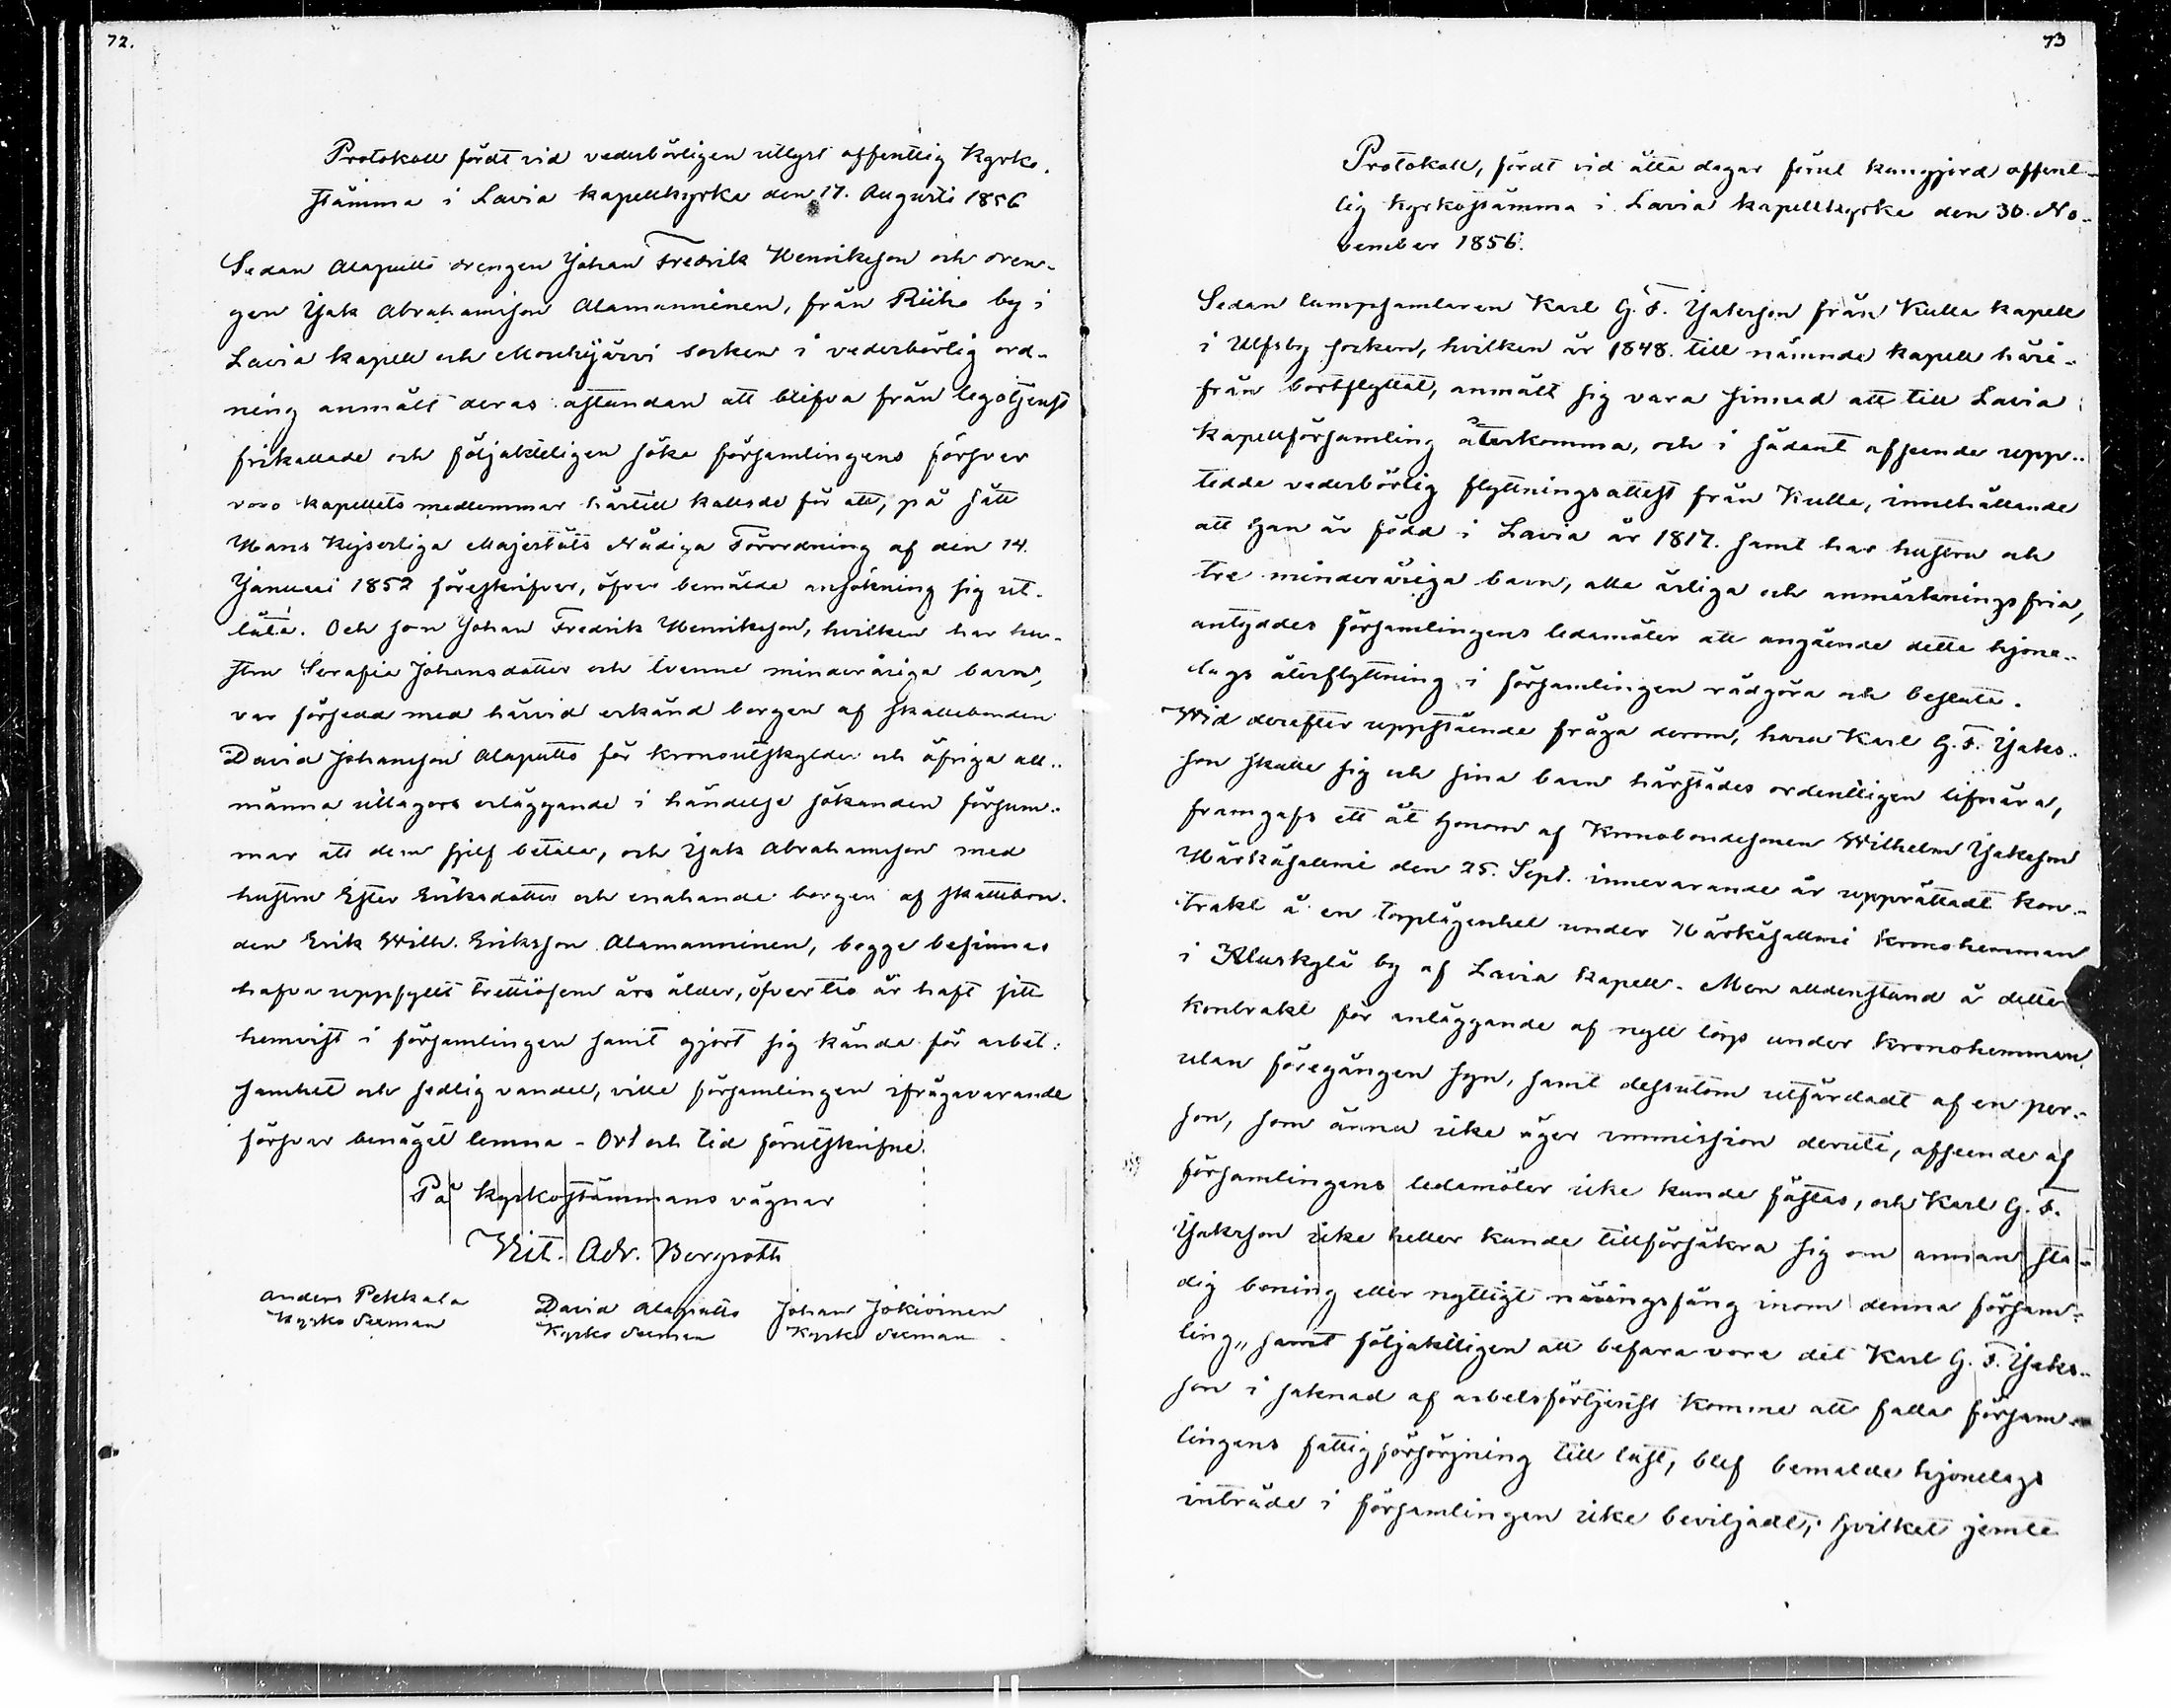 72.
Protokoll fördt vid vederbörligen utlyst offentlig Kyrko-
stämma i Lavia kapellkyrka den 17. Augusti 1856
Sedan Alaputts drengen Johan Fredrik Henriksson och dren-
gen Isak Abrahamsson Alamanninen, från Riiho by i
Lavia kapell och Mouhijärvi socken i vederbörlig ord-
ning anmält deras åstundan att blifva från legotjenst
frikallade och följaktligen söka församlingens försvar
voro kapellets medlemmar härtill kallade för att, på sätt
Hans Kejserliga Majestäts Nådiga Förordning af den 14.
Januari 1852 föreskrifver, öfver bemälde ansökning sig ut-
låta. Och som Johan Fredrik Henriksson, hvilken har hu-
stru Serafia Johansdotter och tvenne minderåriga barn,
var försedd med härvid erkänd borgen af skattebonden
David Johansson Alaputts för kronoutskylder och öfriga all-
männa utlagors erläggande i händelse sökanden försum-
mar att dem sjelf betala, och Isak Abrahamsson med
hustru Ester Eriksdotter och enahanda borgen af skattebon-
den Erik Wilh. Eriksson Alamanninen, begge befinnas
hafva uppfyllt trettiofem års ålder, öfver tio år haft sitt
hemvist i församlingen samt gjort sig kända för arbet-
samhet och sedlig vandel, ville församlingen ifrågavarande
försvar benäget lemna - Ort och tid förutskrifne.
På kyrkostämmans vägnar
Vit. Adr. Bergroth
Anders Pekkala David Alaputts Johan Jokioinen
Kyrko Sexman Kyrko Sexman Kyrko Sexman
73
Protokoll, fördt vid åtta dagar förut kungjord offent-
lig kyrkostämma i Lavia kapellkyrka den 30. No-
vember 1856.
Sedan lumpsamlaren Karl G. F. Isaksson från Kulla kapell
i Ulfsby socken, hvilken år 1848. till nämnde kapell häri-
från bortflyttat, anmält sig vara sinnad att till Lavia
kapellförsamling återkomma, och i sådant afseende upp-
tedde vederbörlig flyttningsattest från Kulla, innehållande
att han är född i Lavia år 1817. samt har hustru och
tre minderåriga barn, alla ärliga och anmärkningsfria,
antyddes församlingens ledamöter att angående detta hjone-
lags återflyttning i församlingen rådgöra och besluta.
Wid derefter uppstående fråga derom, huru Karl G. F. Isaks-
son skulle sig och sina barn härstädes ordentligen lifnära,
framgafs ett åt honom af Kronobondesonen Wilhelm Isaksson
Härkäsalmi den 25. Sept. innevarande år upprättadt kon-
trakt å en torplägenhet under Härkäsalmi kronohemman
i Kluskylä by af Lavia kapell. Men alldenstund å detta
kontrakt för anläggande af nytt torp under kronohemman
utan föregången syn, samt dessutom utfärdadt af en per-
son, som ännu icke äger immission deruti, afseende af
församlingens ledamöter icke kunde fästas, och Karl G. F.
Isaksson icke heller kunde tillförsäkra sig om annan sta-
dig boning eller nyttigt näringsfång inom denna försam-
ling, samt följaktligen att befara vore det Karl G. F. Isaks-
son i saknad af arbetsförtjenst komme att falla försam-
lingens fattigförsörjning till last, blef bemälde hjonelags
inträde i församlingen icke beviljadt; hvilket jemte